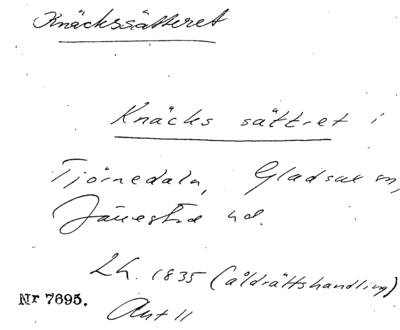 Knäckssätteret
Knäcks sättret i
Tjörnedala, Gladsax sn,
Järrestad hd.
Lh. 1835 (åldrättshandling)
Nr 7695.
Ant 11